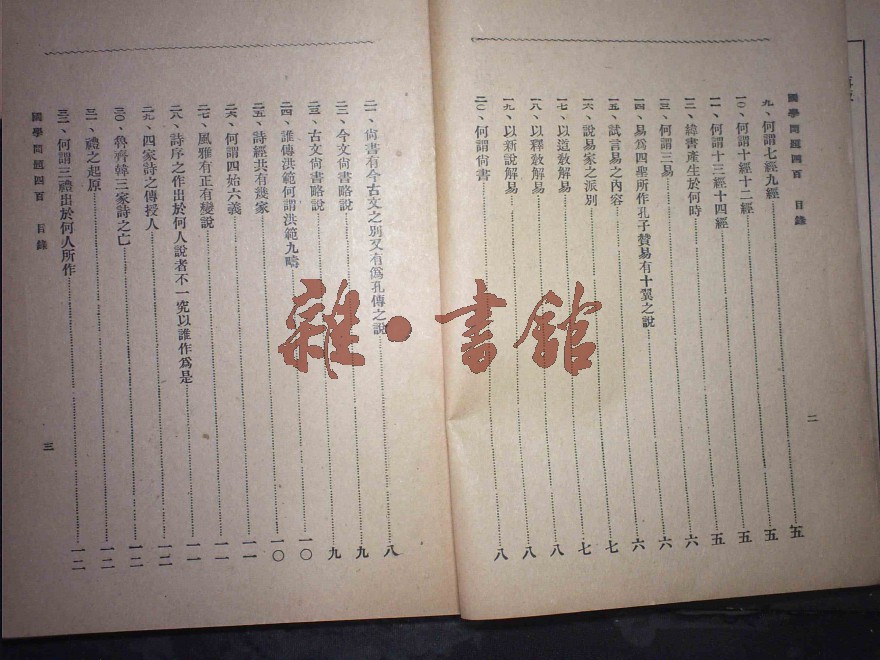 國學問題四百 目錄
二
九、何謂七經九經……五
一〇、何謂十經十二經……五
一一、何謂十三經十四經……五
一二、緯書產生於何時……五
一三、何謂三易……六
一四、易爲四聖所作孔子贊易有十翼之說……六
一五、試言易之內容……六
一六、說易家之派別……七
一七、以道敎解易……七
一八、以釋敎解易……八
一九、以新說解易……八
二〇、何謂尙書……八
二一、尙書有今古文之別又有僞孔傳之說……八
二二、今文尙書略說……九
二三、古文尙書略說……九
二四、誰傳洪範何謂洪範九疇……一〇
二五、詩經共有幾家……一〇
二六、何謂四始六義……一一
二七、風雅有正有變說……一一
二八、詩序之作出於何人說者不一究以誰作爲是……一一
二九、四家詩之傳授人……一二
三〇、魯齊韓三家詩之亡……一二
三一、禮之起原……一二
三二、何謂三禮出於何人所作……一二
國學問題四百 目錄
三
雜·書館